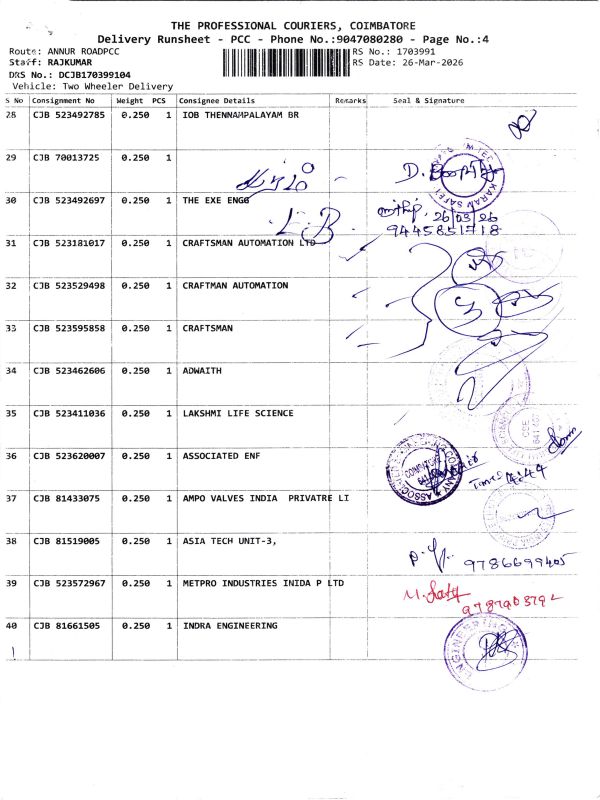 THE PROFESSIONAL COURIERS, COIMBATORE
Delivery Runsheet - PCC - Phone No.:9047080280 - Page No.:4
Route: ANNUR ROADPCC RS No.: 1703991
Staff: RAJKUMAR RS Date: 26-Mar-2026
DRS No.: DCJB170399104
Vehicle: Two Wheeler Delivery
S No Consignment No Weight PCS Consignee Details Remarks Seal & Signature
28 CJB 523492785 0.250 1 IOB THENNAMPALAYAM BR
29 CJB 70013725 0.250 1
30 CJB 523492697 0.250 1 THE EXE ENGG
26/03/26
9445851718
31 CJB 523181017 0.250 1 CRAFTSMAN AUTOMATION LTD
32 CJB 523529498 0.250 1 CRAFTMAN AUTOMATION
33 CJB 523595858 0.250 1 CRAFTSMAN
34 CJB 523462606 0.250 1 ADWAITH
35 CJB 523411036 0.250 1 LAKSHMI LIFE SCIENCE
36 CJB 523620007 0.250 1 ASSOCIATED ENF
37 CJB 81433075 0.250 1 AMPO VALVES INDIA PRIVATRE LI
38 CJB 81519005 0.250 1 ASIA TECH UNIT-3,
9786699405
39 CJB 523572967 0.250 1 METPRO INDUSTRIES INIDA P LTD
40 CJB 81661505 0.250 1 INDRA ENGINEERING